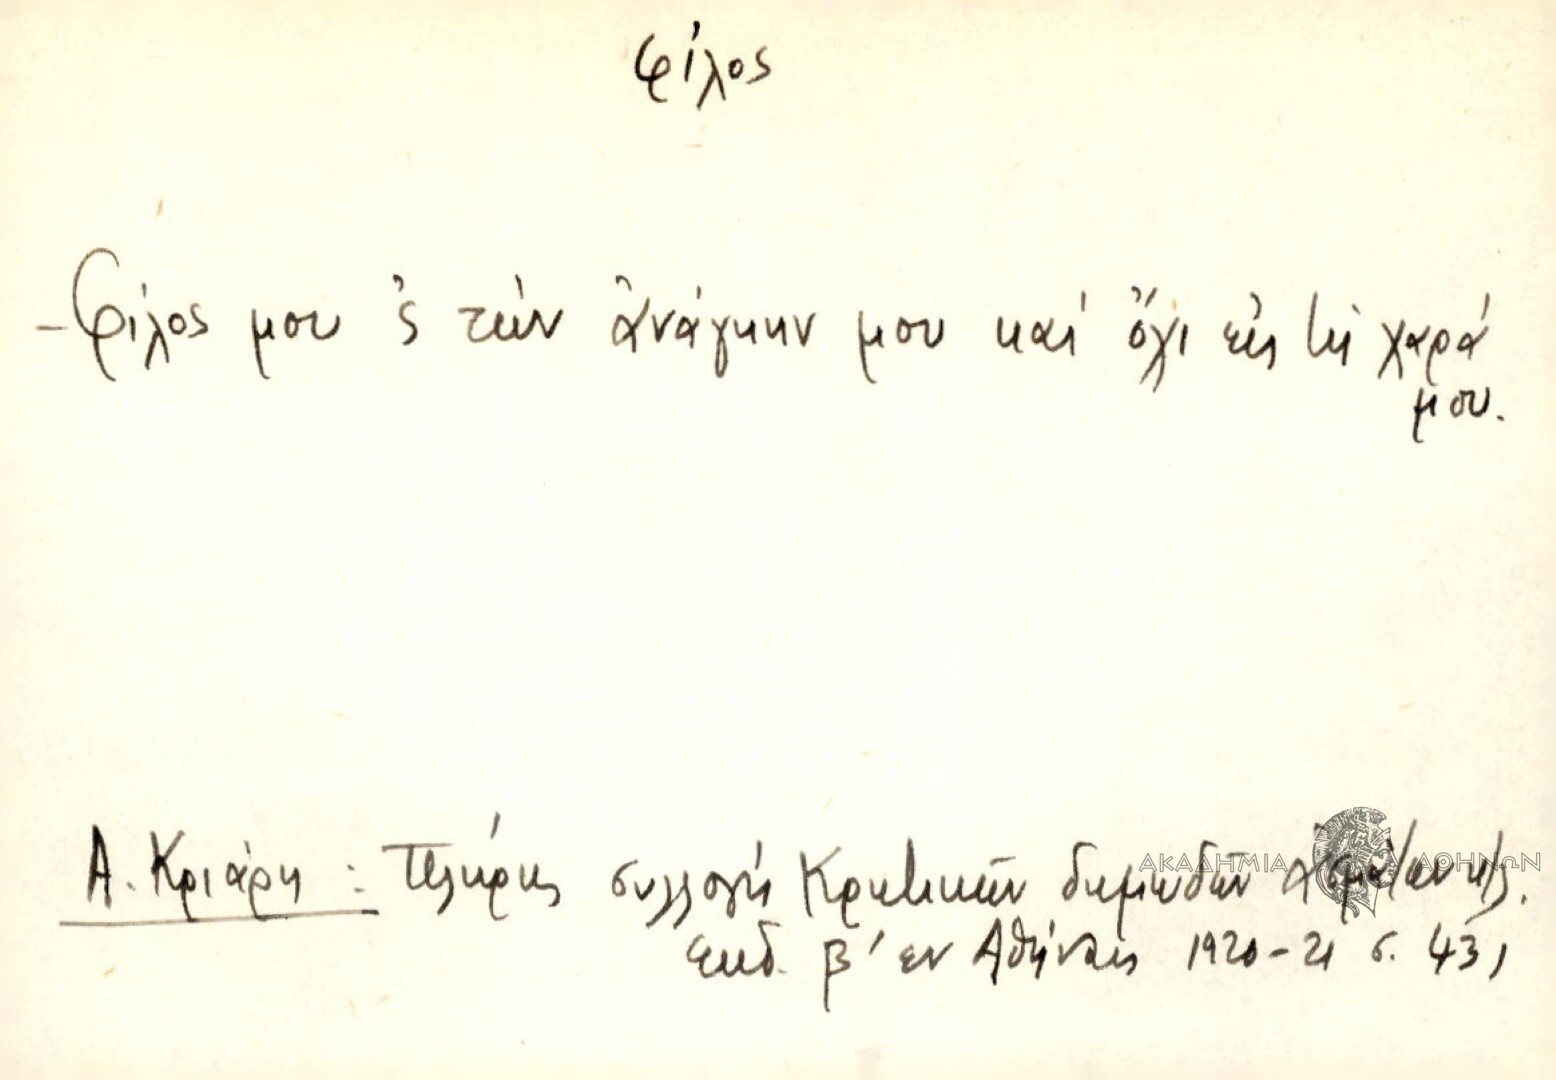 φίλος
- Φίλος μου ς τὴν ἀνάγκην μου καὶ ὄχι εἰς τὴ χαρά
μου.
Α. Κριάρη : Πλήρης συλλογή Κρητικῶν δημωδῶν ἀσμάτων κτλ.
εκδ. β' εν Αθήναις 1920-21 σ. 431
ΑΚΑΔΗΜΙΑ ΑΘΗΝΩΝ